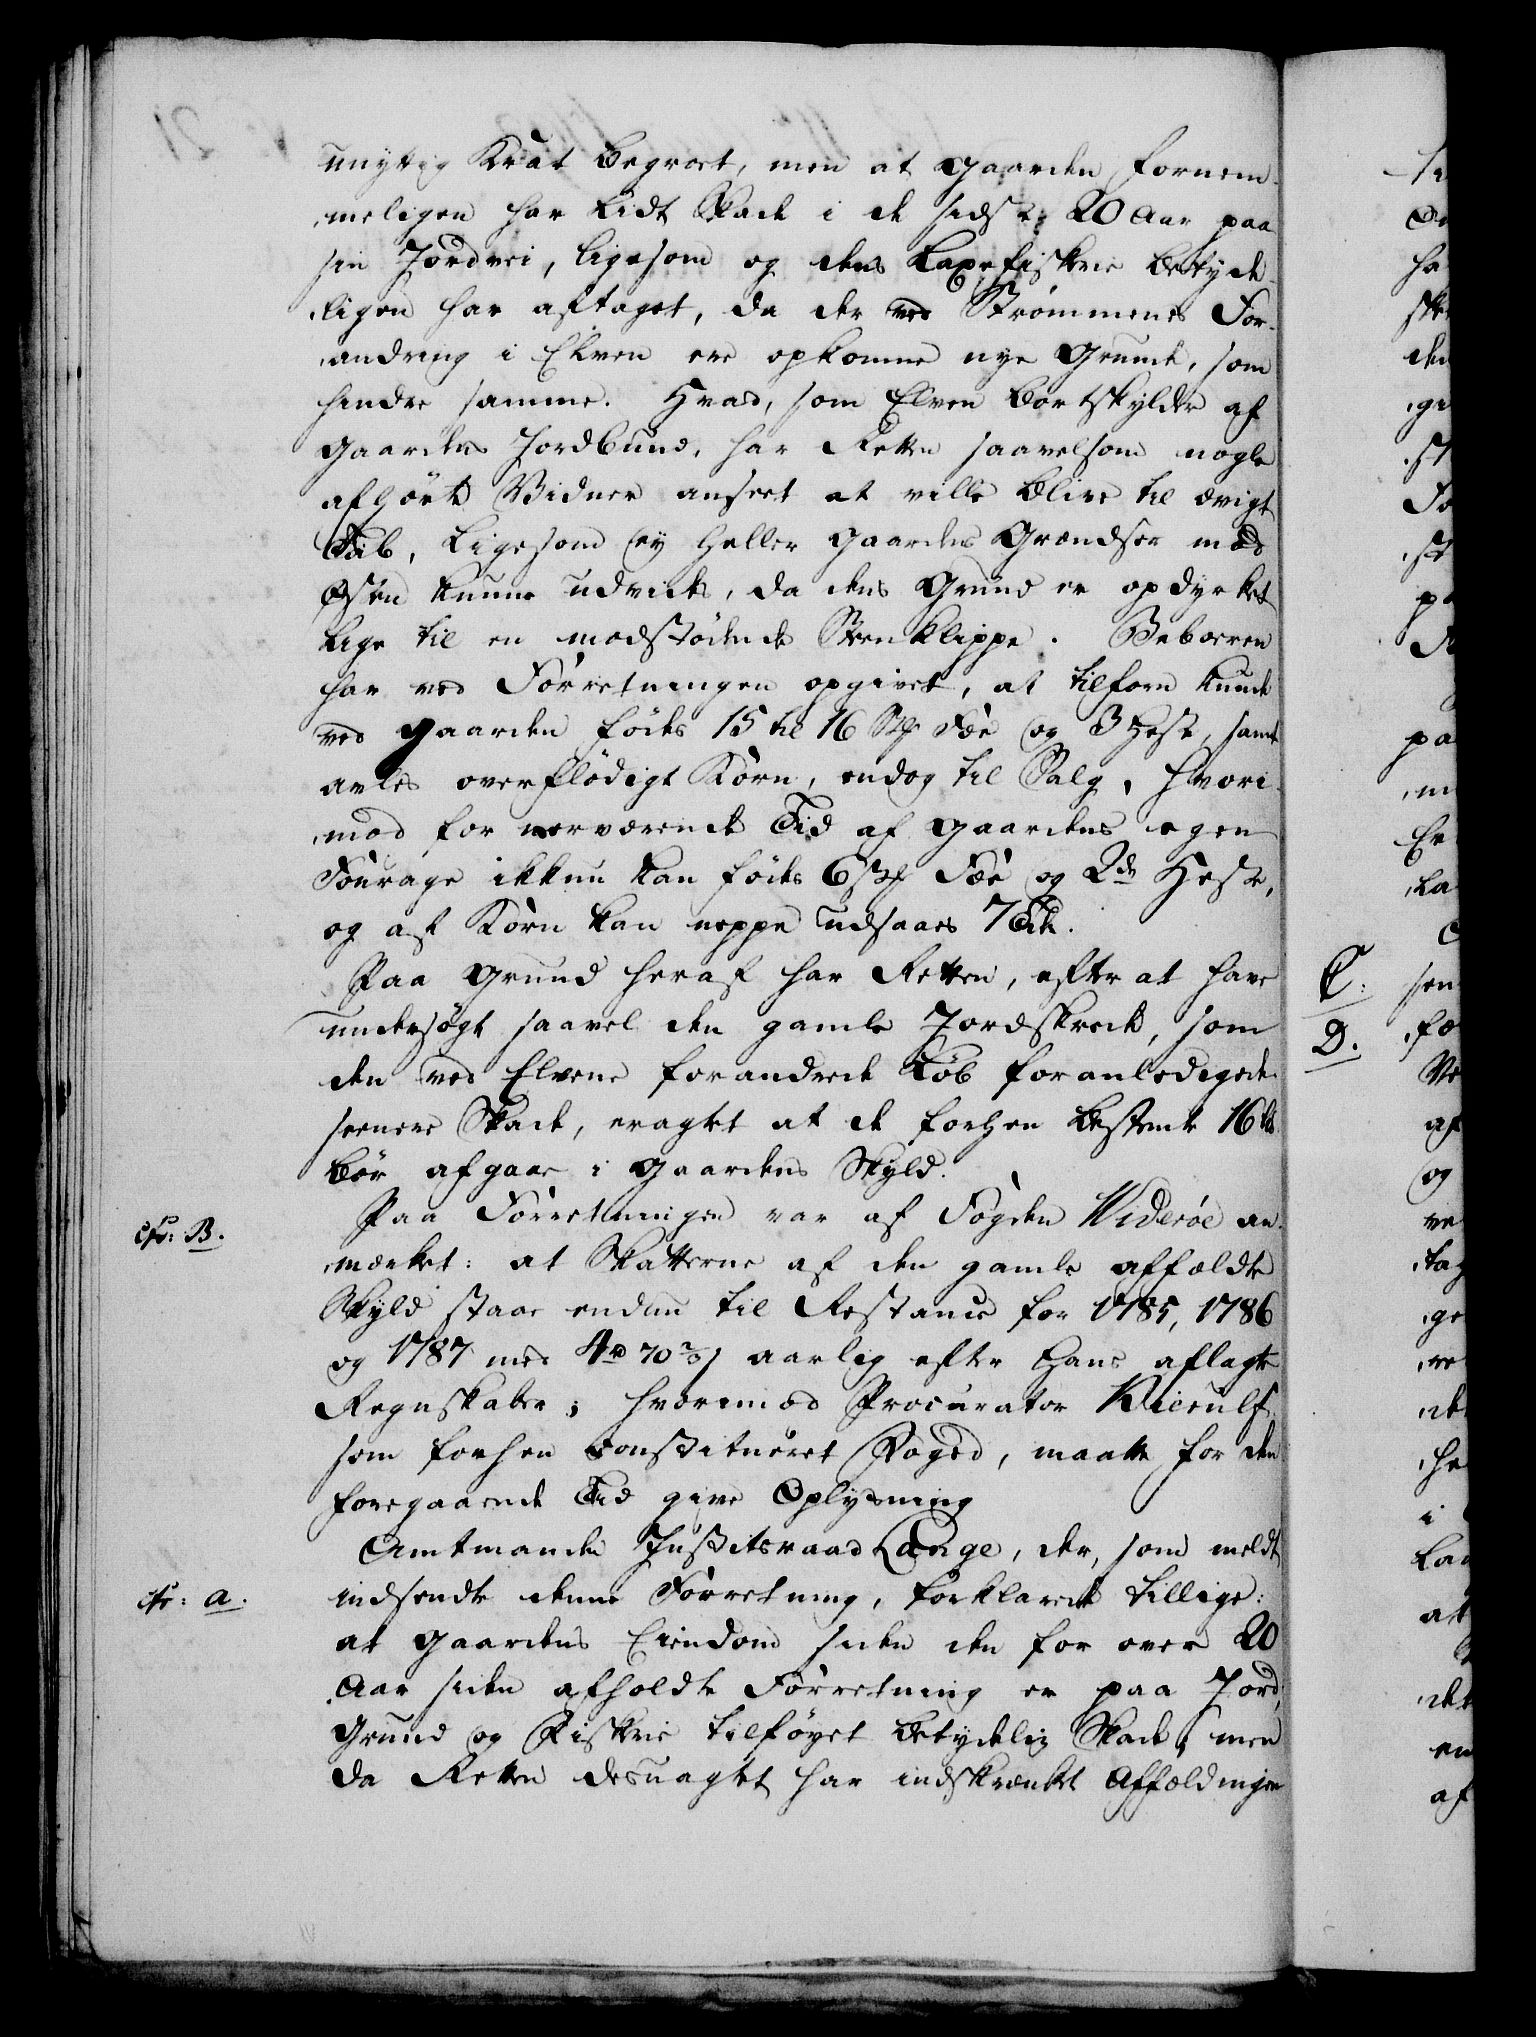 unyttig Krat begroet, men at Gaarden fornem-
meligen har lidt Skade i de sidste 20 Aar paa
sin Jordvei, ligesom og dens Laxefiskerie betyde-
ligen har aftaget, da der ved Strømmenes For-
andring i Elven ere opkomne nye Grunde, som
hindre samme. Hvad, som Elven bortskylder af
Gaardens Jordbund, har Retten saavelsom nogle
afhørte Vidner anseet at ville blive til ævigt
Tab, ligesom ey heller Gaardens Grændser mod
Østen kunne udvides, da dens Grund er opdyrket
lige til en modstødende Steenklippe. Beboeren
har ved Forretningen opgivet, at tilforn kunde
ved Gaarden fødes 15 til 16 Stk Fæe og 3 Heste, samt
avles overflødigt Korn, endog til Salg, hvori-
mod for nærværende Tid af Gaardens egen
Fourage ikkun kan fødes 6 Stk Fæe og 2de Heste,
og af Korn kan neppe udsaaes 7 Tdr.
Paa Grund heraf har Retten, efter at have
undersøgt saavel den gamle Jordskrede, som
den ved Elvens forandrede Løb foranledigede
seenere Skade, eragtet at de forhen bestemte 16
bør afgaae i Gaardens Skyld.
cfr: B.
Paa Forretningen var af Fogden Widerøe an-
mærket: at Skatterne af den gamle affældte
Skyld staae endnu til Restance for 1785, 1786
og 1787 med 4 rd 70 2/3 s aarlig efter Hans aflagte
Regnskaber; hvorimod Procurator Wieulf
som forhen constitueret Foged, maatte for den
foregaaende Tid give Oplysning
Amtmanden Justitsraad Lange, der, som meldt
cfr: a.
indsendte denne Forretning, forklarede tillige:
at Gaardens Eiendom siden den for over 20
Aar siden afholdte Forretning er paa Jord,
Grund og Fiskerie tilføyet betydelig Skade, men
da Retten desuagtet har indskrænket Affældningen
C.
D.